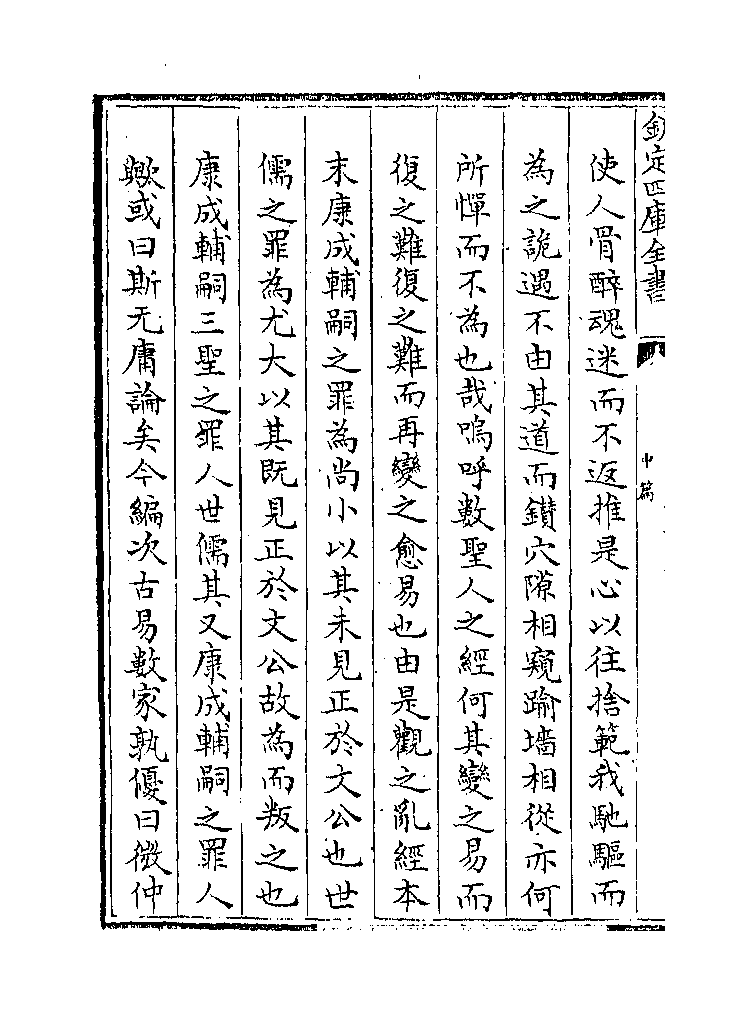 欽定四庫全書
中篇
使人骨醉魂迷而不返推是心以往捨範我馳驅而
為之詭遇不由其道而鑚穴隙相窺踰墻相從亦何
所憚而不為也哉嗚呼數聖人之經何其變之易而
復之難復之難而再變之愈易也由是觀之亂經本
末康成輔嗣之罪為尚小以其未見正於文公也世
儒之罪為尤大以其既見正於文公故為而叛之也
康成輔嗣三聖之罪人世儒其又康成輔嗣之罪人
歟或曰斯无庸論矣今編次古易數家孰優曰微仲